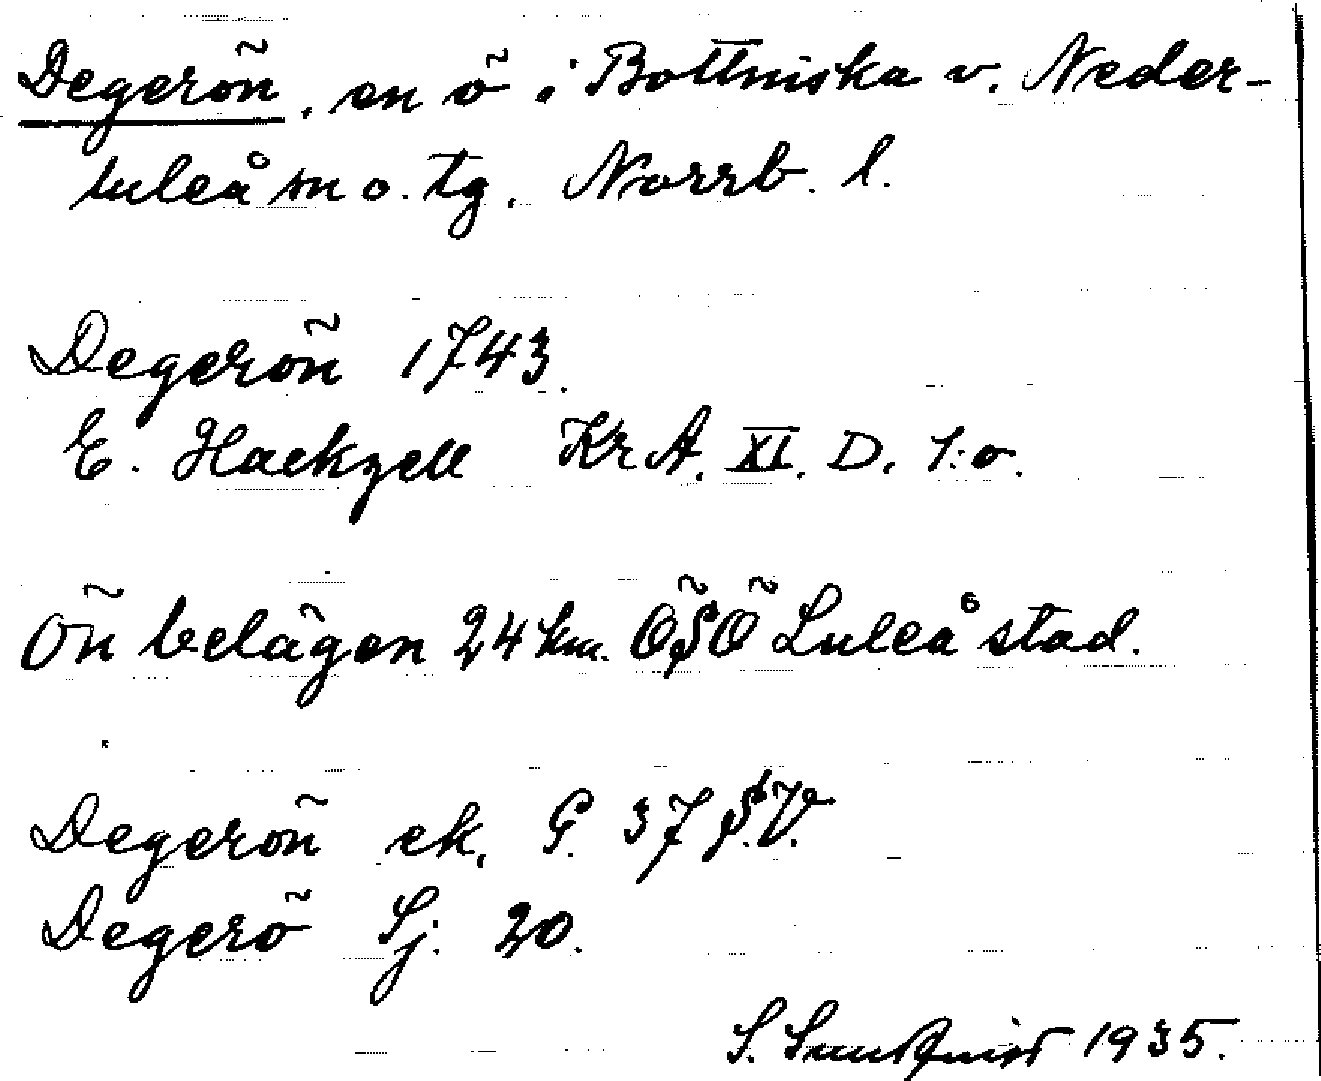 Degerön, en ö i Bottniska v. Neder-
luleå sn o. tg. Norrb. l.
Degerön 1743.
E. Hackzell KrA. XI. D. 1:a.
Ön belägen 24 km. ÖSÖ Luleå stad.
Degerön ek. G. 37 S.V.
Degerö Sj. 20.
S. Sundqvist 1935.